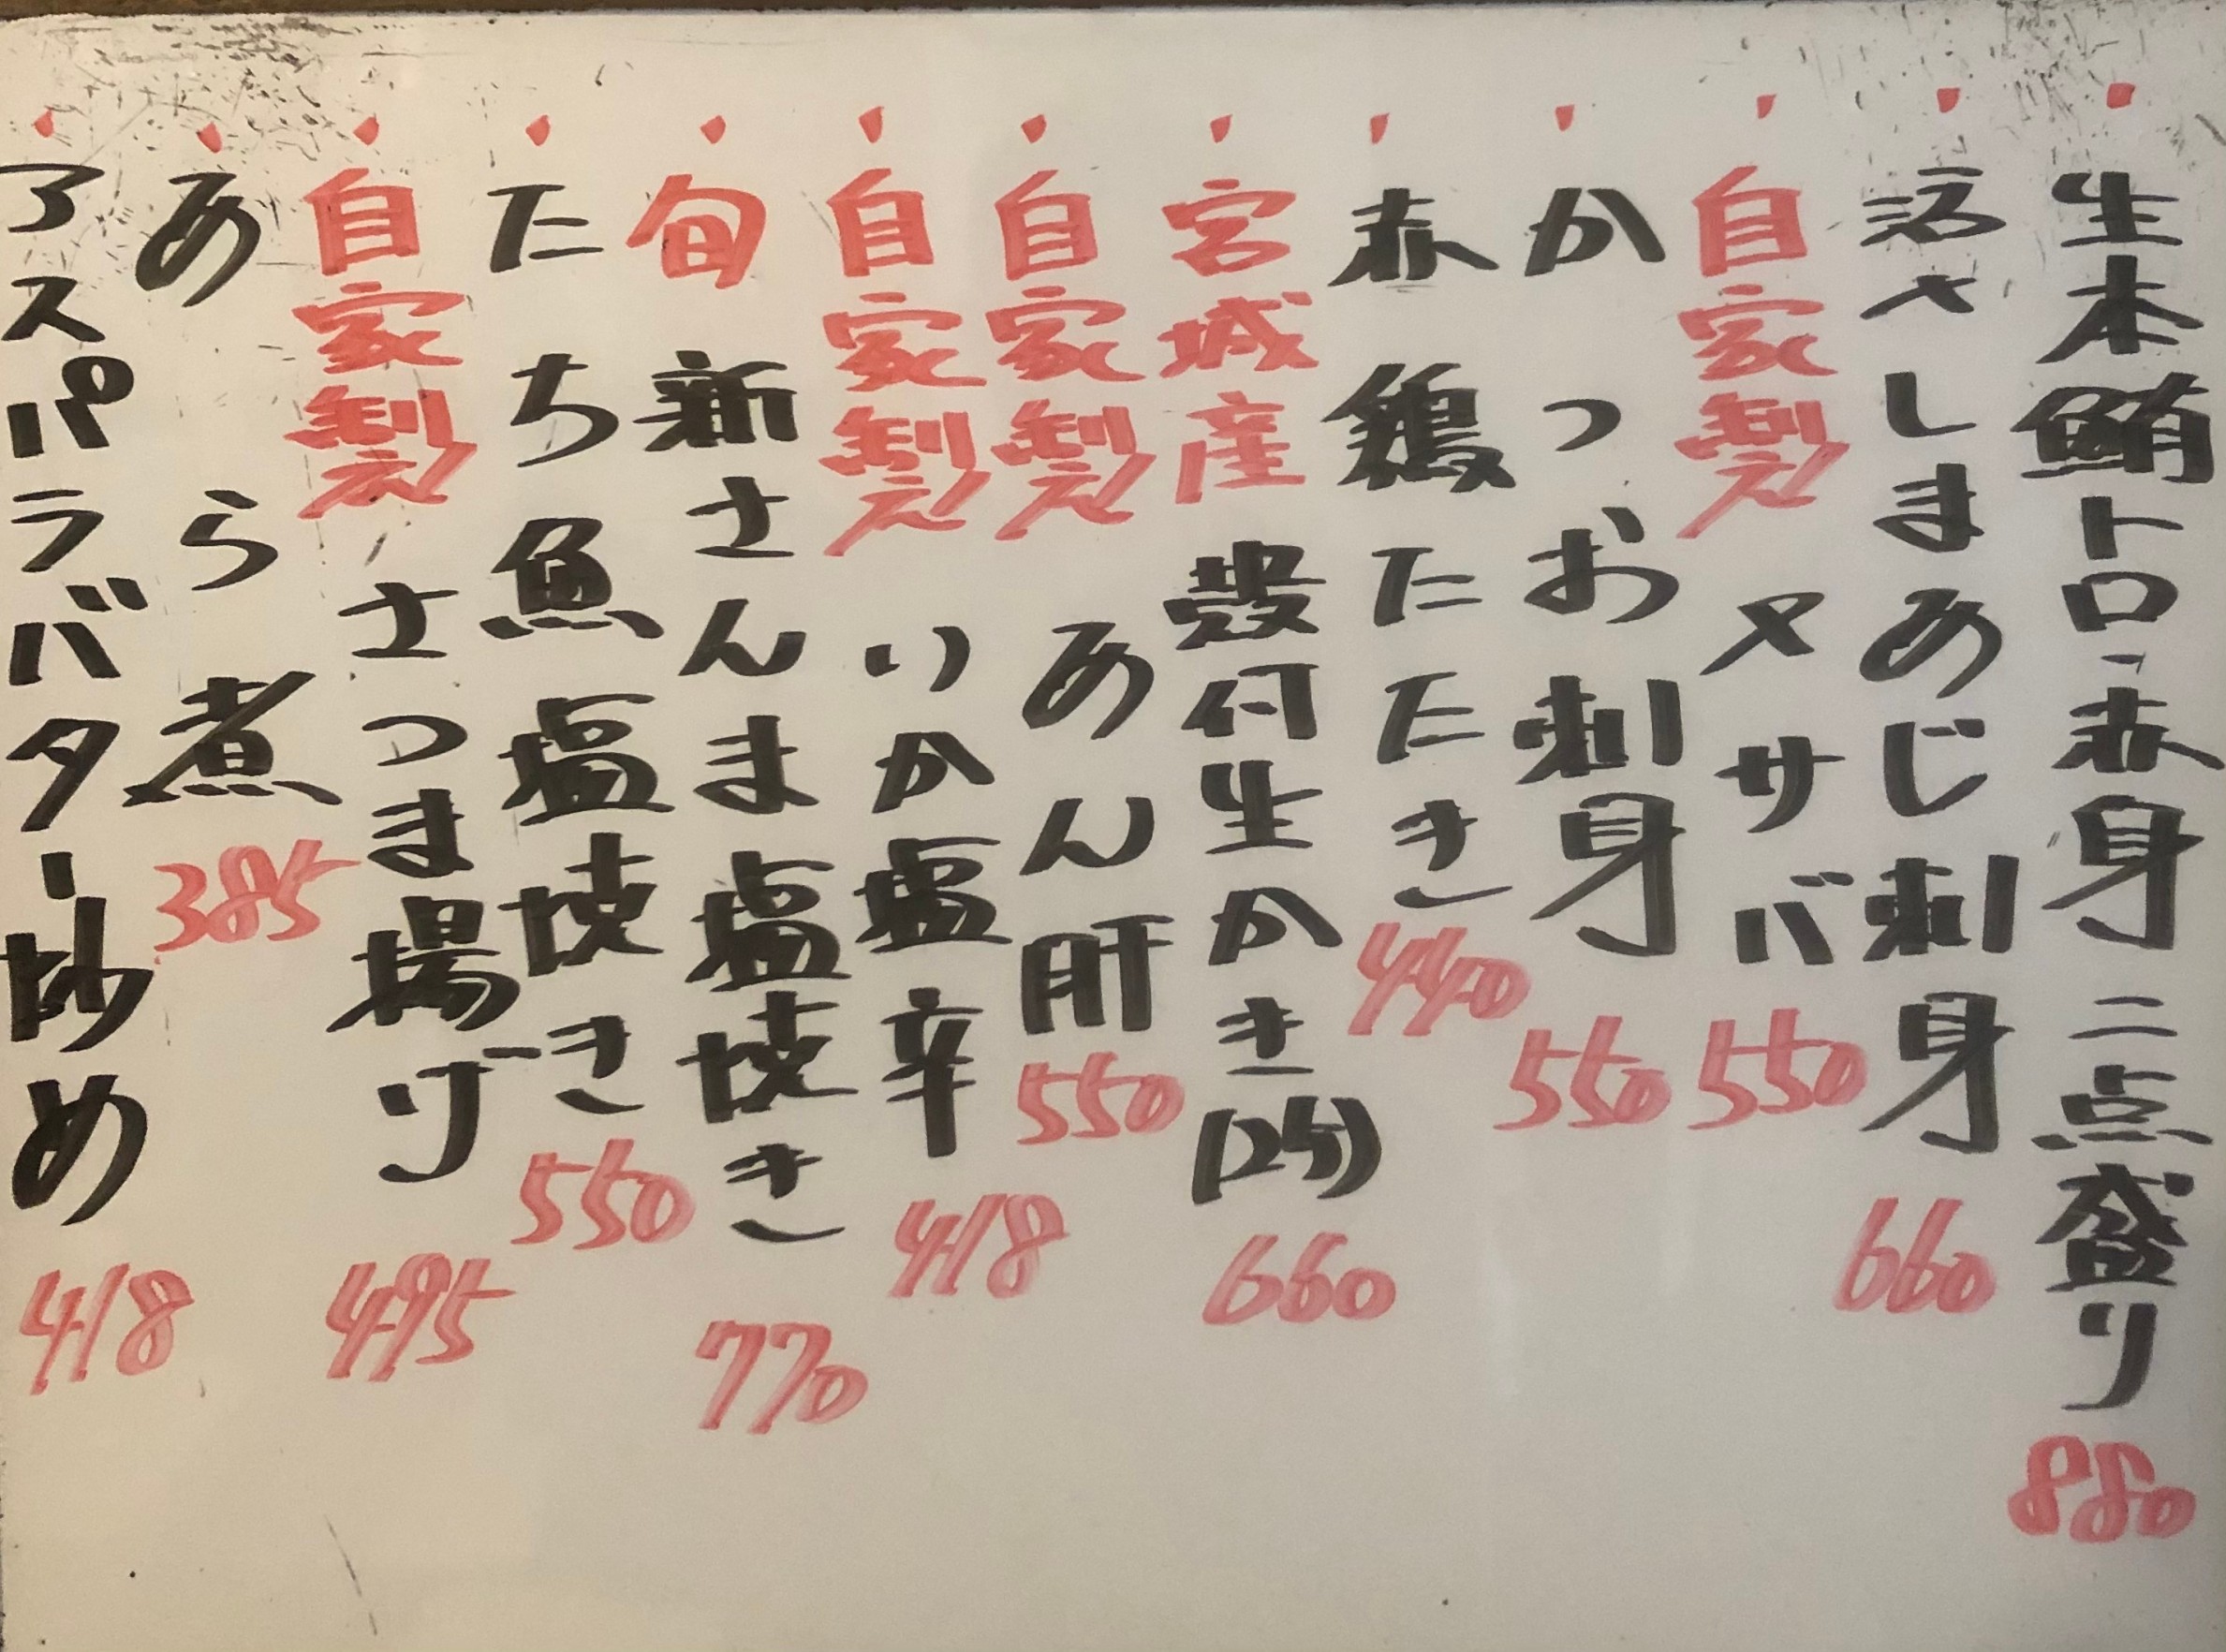 ・生本鮪トロ、赤身二点盛り 880
・活〆しまあじ刺身 660
・自家製 〆サバ 550
・かつお刺身 550
・赤鶏たたき 440
・宮城産 殻付生かき(2ケ) 660
・自家製 あん肝 550
・自家製 いか塩辛 418
・旬 新さんま塩焼き 770
・たち魚塩焼き 550
・自家製 さつま揚げ 495
・あら煮 385
・アスパラバター炒め 418